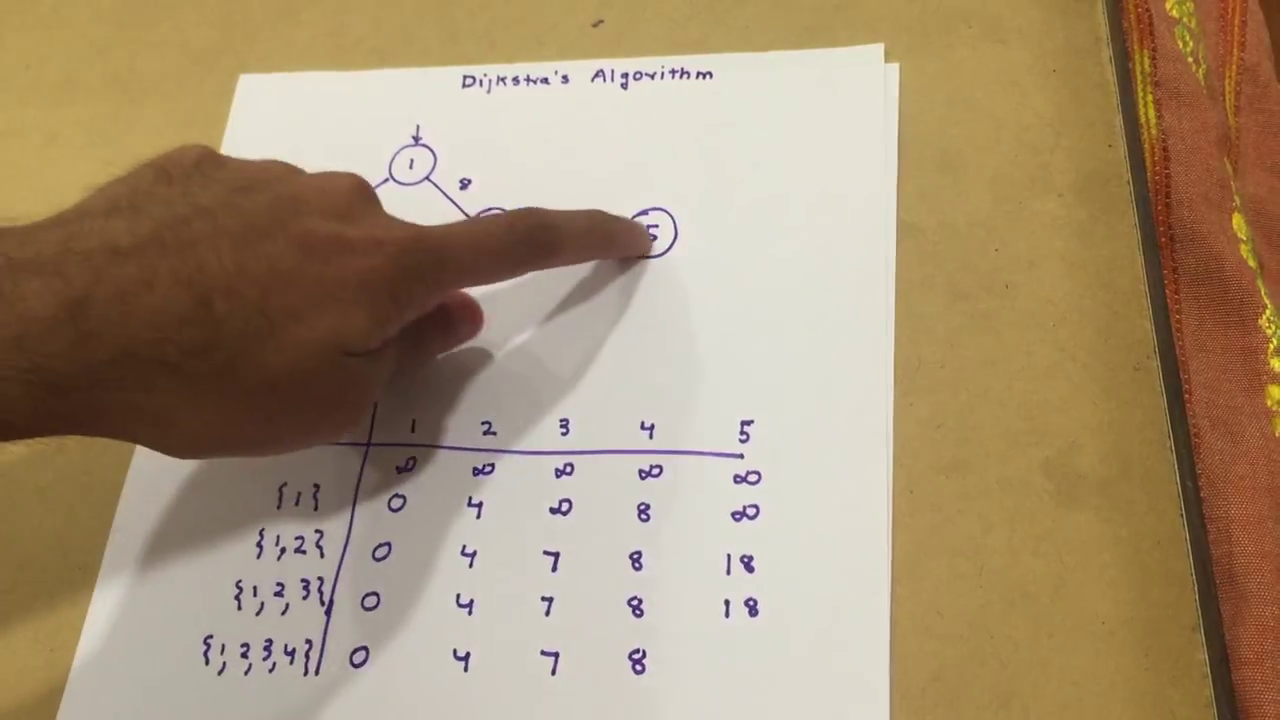 Dijkstra's Algorithm
1
8
5
1 2 3 4 5
∞ ∞ ∞ ∞ ∞
{1} 0 4 ∞ 8 ∞
{1,2} 0 4 7 8 18
{1,2,3} 0 4 7 8 18
{1,2,3,4} 0 4 7 8